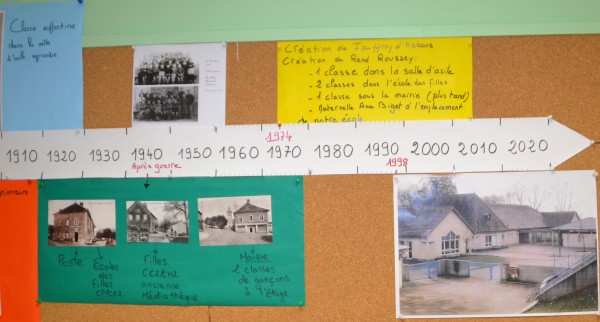 Classe enfantine
dans la salle
d'asile agrandie
Création de Jouffroy d'Abbans
Création de René Roussey:
- 1 classe dans la salle d'asile
- 2 classes dans l'école des filles
- 1 classe sous la mairie (plus tard)
- Maternelle Ann Biget d l'emplacement
de notre école
1974
1910 1920 1930 1940 1950 1960 1970 1980 1990 2000 2010 2020
Après guerre
1998
Poste
Écoles
des
filles
CP,CE1
Filles
CE2,CM1
ancienne
Médiathèque
Mairie
2 classes
de garçons
à l'étage